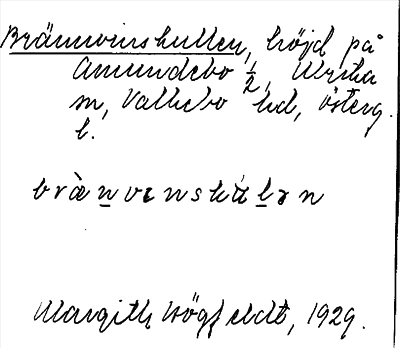 Brännvinskullen, höjd på
Amundebo 1/2, Yxnha
m, Valkebo hd, Österg.
l.
brä̀n̲vɪnskúl̲ən
Margith Högfeldt, 1929.